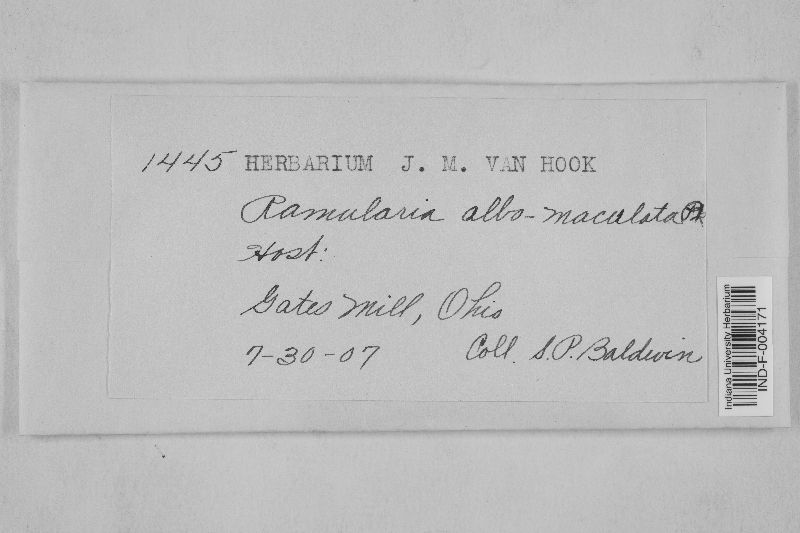 1445 HERBARIUM J. M. VAN HOOK
Ramularia albo-maculata Pk
Host:
Gates Mill, Ohio
7-30-07 Coll. S.P. Baldwin
Indiana University Herbarium
IND-F-004171